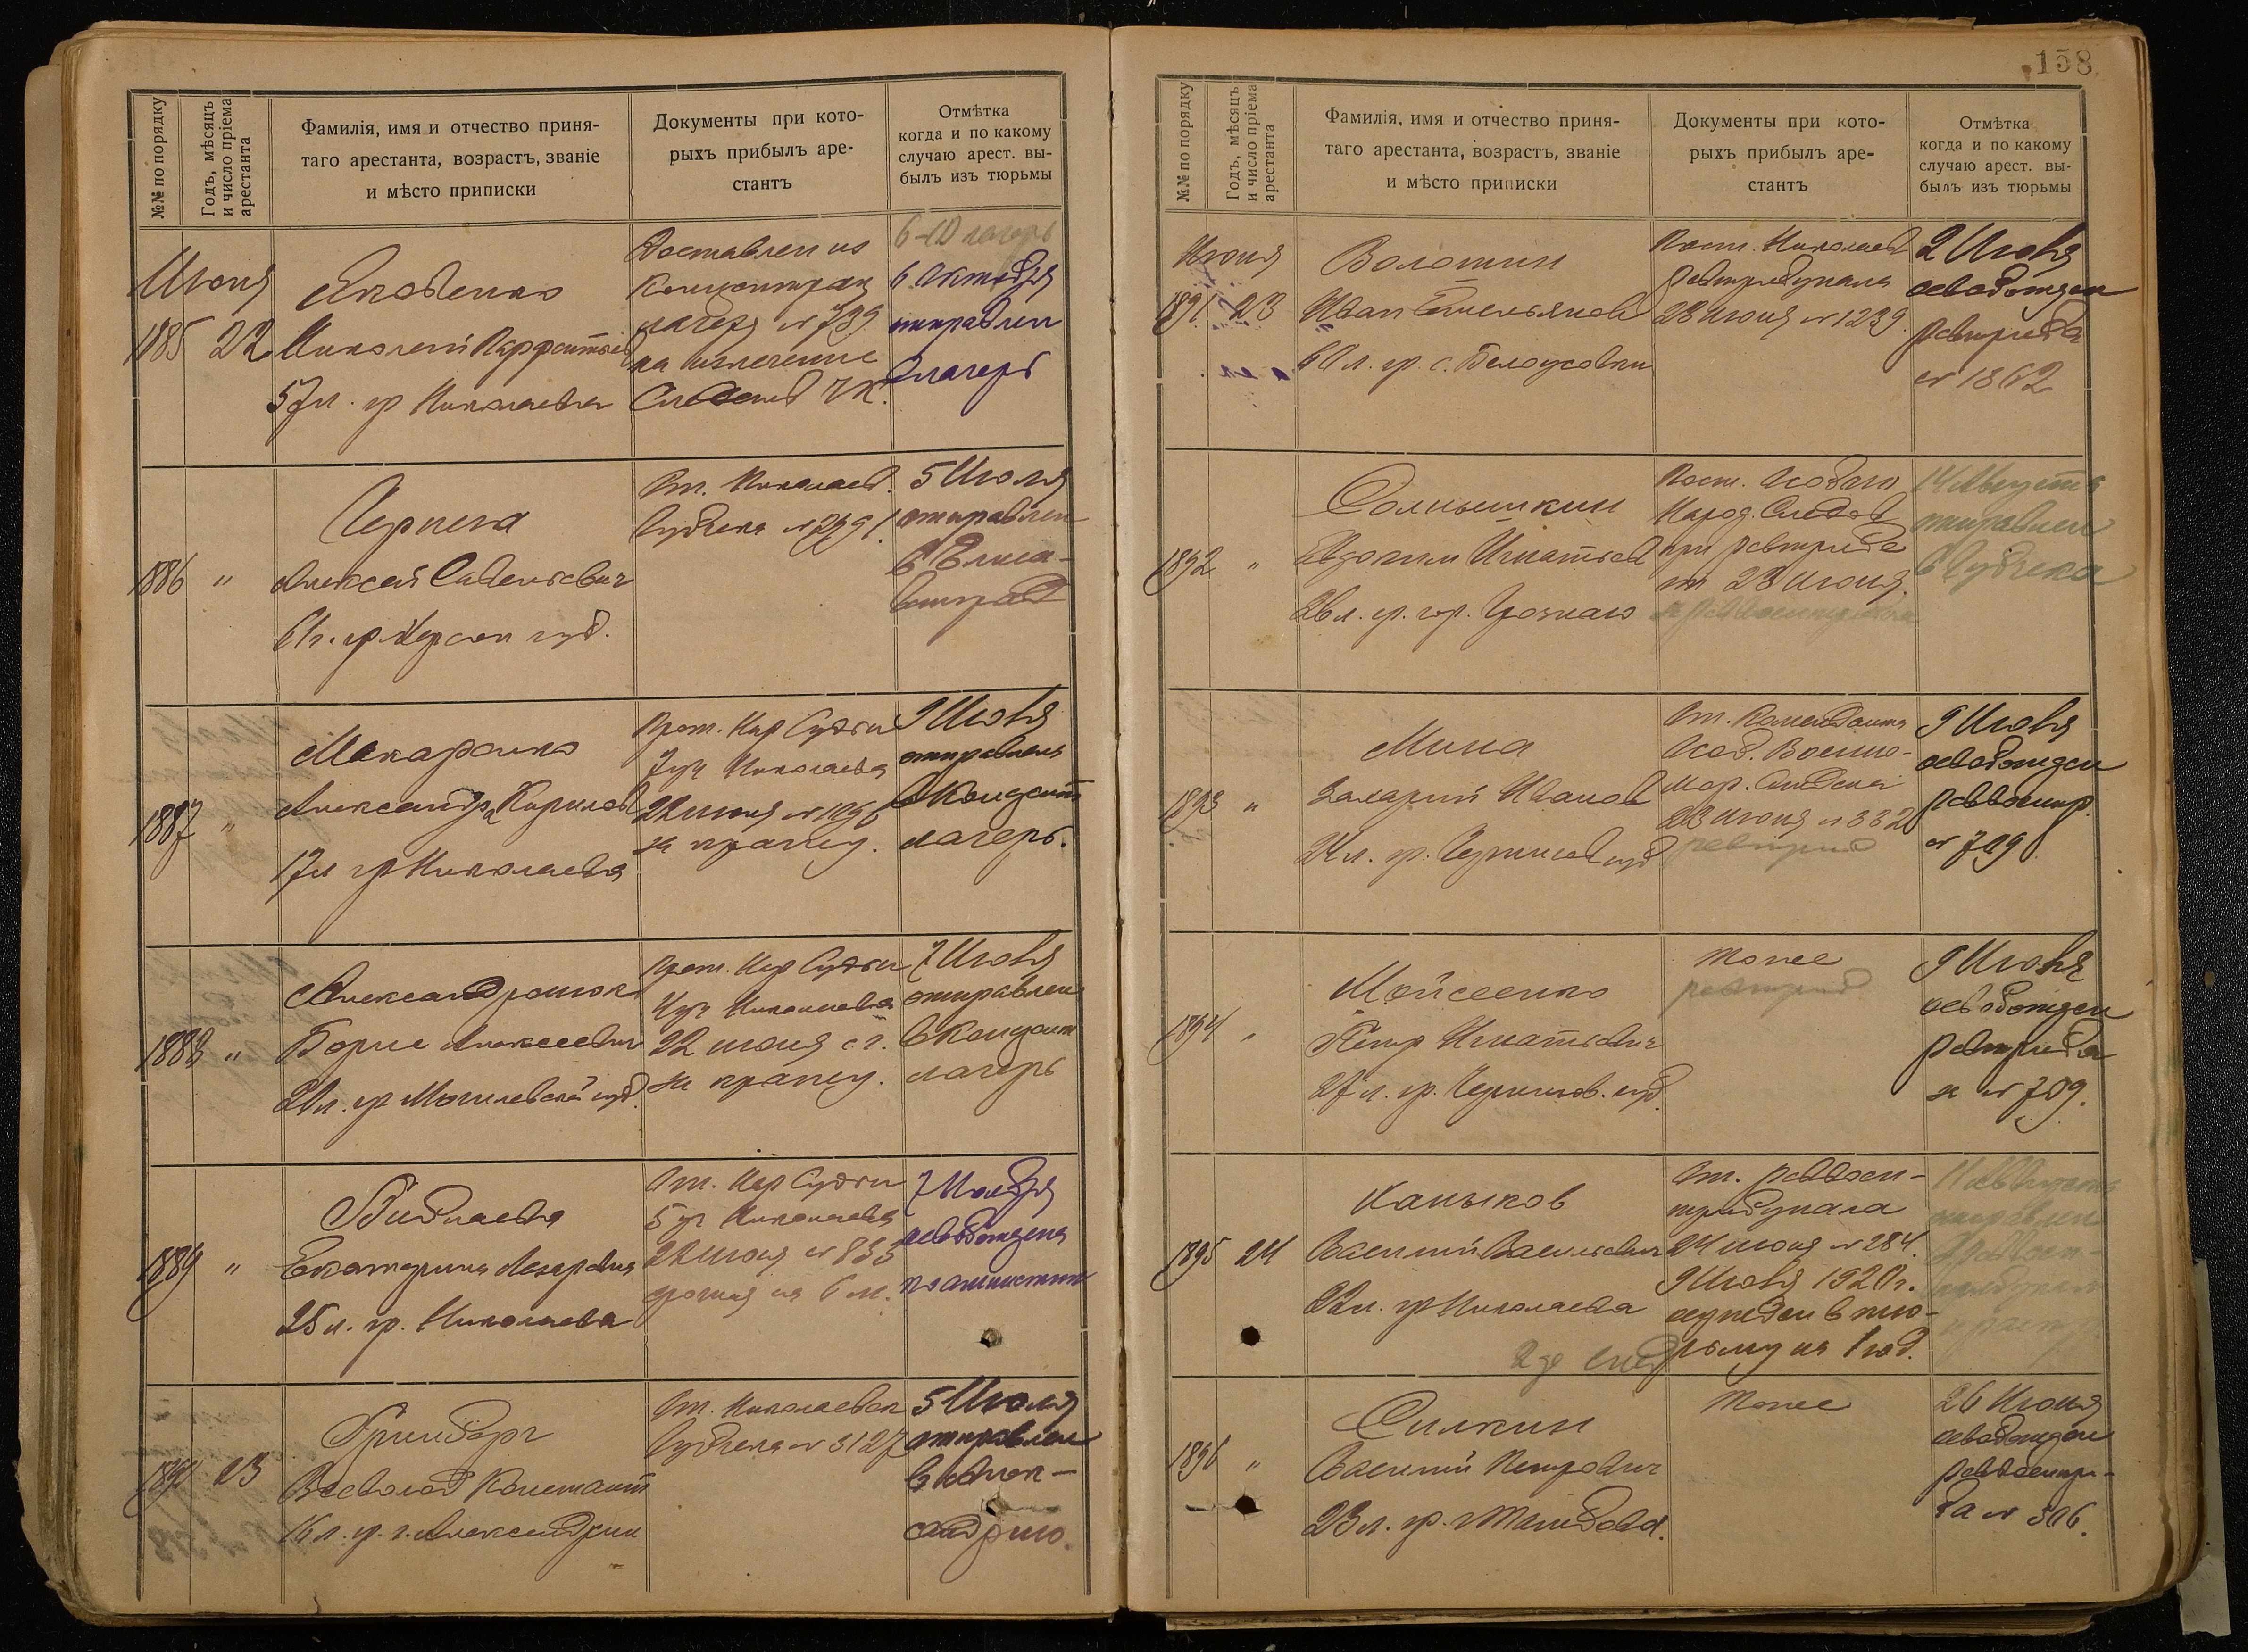 №№ по порядку
Годъ, мѣсяцъ
и число пріема
арестанта
Фамилія, имя и отчество приня-
таго арестанта, возрастъ, званіе
и мѣсто приписки
Документы при кото-
рыхъ прибылъ аре-
стантъ
Отмѣтка
когда и по какому
случаю арест. вы-
былъ изъ тюрьмы
Июня
1885 22
Яковенко
Николай
57 л. гр Николаева
Доставлен из
Концентрац
лагеря № 739
на излечение
ЧК.
6-10 лагерь
6 Октября
отправлен
в лагерь
1886 "
Черпега
Алексей Савельевич
гр. Херсон губ.
От. Николаев.
Губчека № 2791
5 Июля
отправлен
в Елиса-
ветград
1887 "
Макаренко
Александра Кирилов
17 л гр Николаева
Прот. Нар Судьи
7 уч Николаева
22 июня № 1096
за кражу.
9 Июля
отправлена
в Концент
лагерь.
1888 "
Александронок
Борис Алексеевич
20 л. гр Могилевской губ.
Прот. Нар Судьи
4 уч Николаева
22 июня с г.
за кражу.
7 Июля
отправлен
в Концент
лагерь
1889 "
Екатерина Лазаревна
25 л. гр. Николаева
От. Нар Судьи
5 уч Николаева
22 июня № 833
сроком на 6 м.
7 Ноября
освобождена
по амнистии
1890 23
Гринберг
Всеволод Констант
16 л. гр. г. Александрии
От. Николаевск
Губчека № 3127
5 Июля
отправлен
в Алек-
сандрию.
158
№№ по порядку
Годъ, мѣсяцъ
и число пріема
арестанта
Фамилія, имя и отчество приня-
таго арестанта, возрастъ, званіе
и мѣсто приписки
Документы при кото-
рыхъ прибылъ аре-
стантъ
Отмѣтка
когда и по какому
случаю арест. вы-
былъ изъ тюрьмы
Июня
1891 23
Волошин
Иван Емельянов
60 л. гр. с. Белоусовки
Пост. Николаев
Ревтрибунала
23 июня № 1239.
2 Июля
освобожден
Ревтриба
№ 1862
1892 "
Солнышкин
Евдоким Игнатьев
26 л. гр. гор. Грозного
Пост. Особого
Народ. Следов
при Ревтрибе
от 23 июня.
14 Августа
отправлен
в Губчека
1893 "
Мина
Захарий Иванов
24 л. гр. Чернигов губ
От. Коменданта
Особ. Военно-
Мор.
23 июня № 332
ревтриб
9 Июля
освобожден
Реввоентр.
№ 709
1894 "
Мойсеенко
Петр Игнатьевич
27 л. гр. Чернигов. губ.
Тоже
ревтриб
9 Июля
освобожден
Ревтриба
за № 709.
1895 24
Каныков
Василий Васильевич
22 л. гр Николаева
От. Реввоен-
трибунала
24 июня № 284.
9 Июля 1920 г.
осужден в тю-
рьму на 1 год.
11 Августа
отправлен
1896 "
Силкин
Василий Петрович
23 л. гр. г Тамбова.
Тоже
26 Июня
освобожден
Реввоентри-
ба № 306.